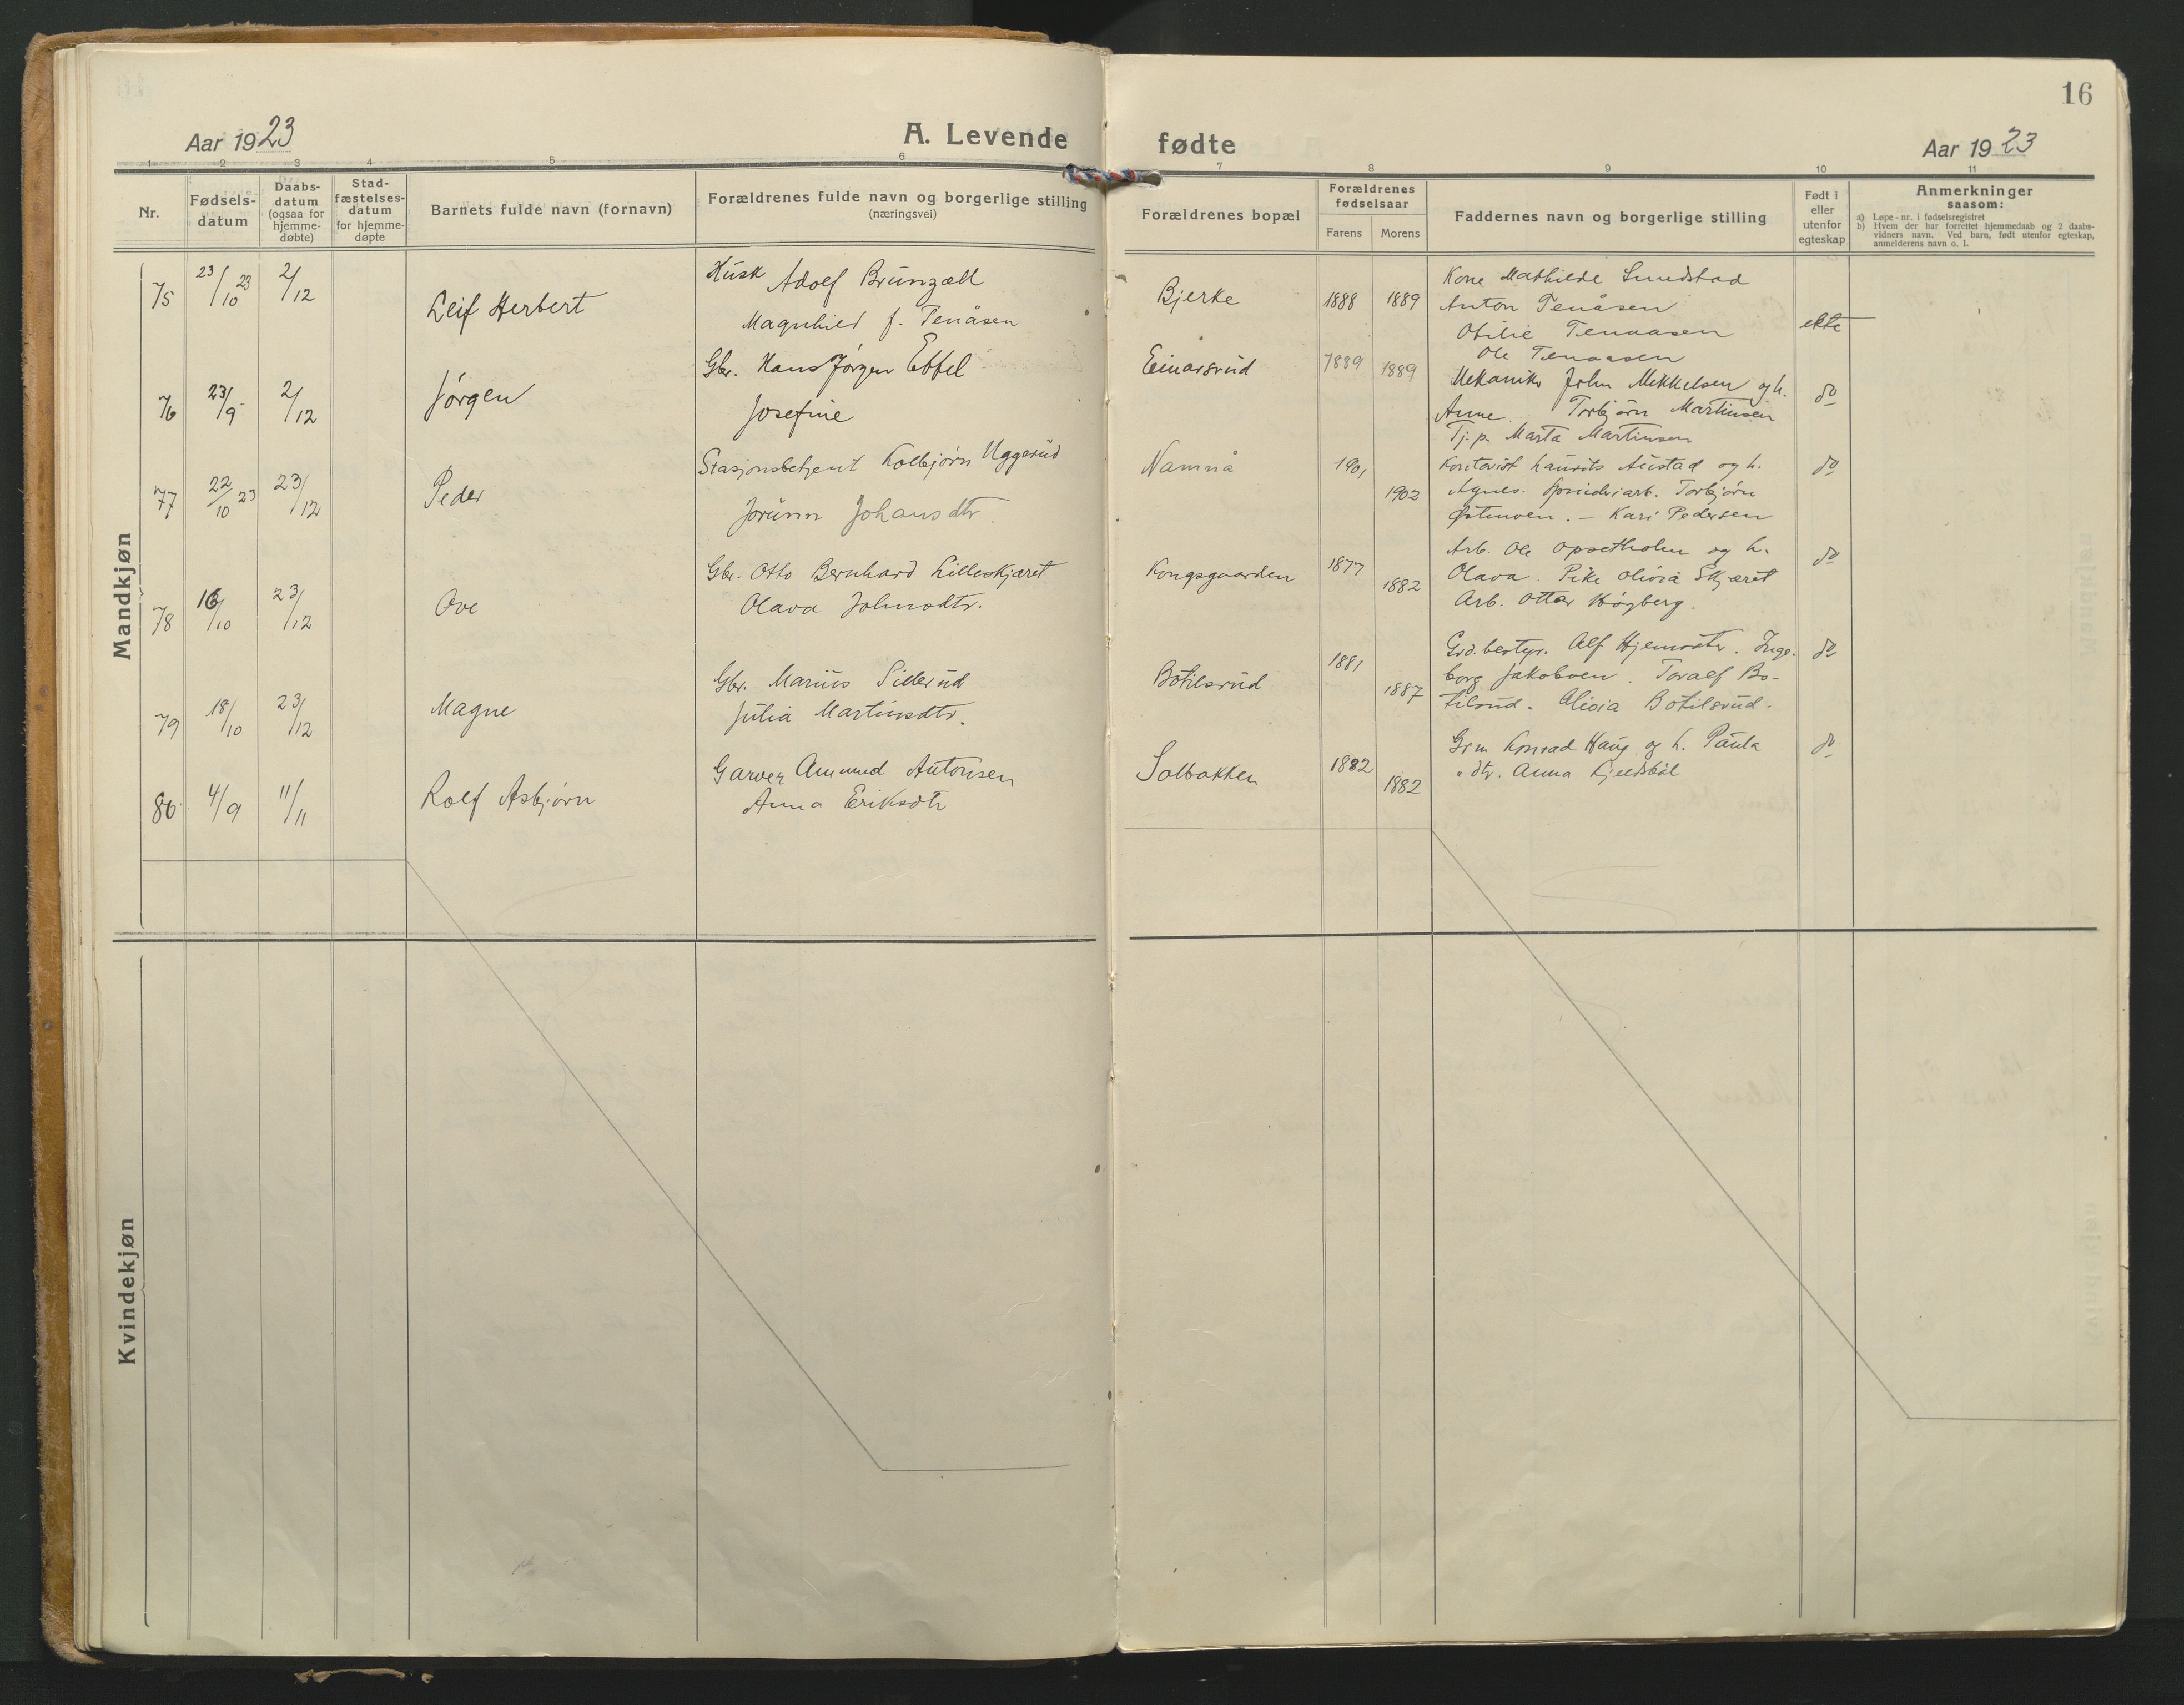 16
Aar 1923
A. Levende fødte
Aar 1923
1 2 3 4 5 6 7 8 9 10 11
Nr.
Fødsels-
datum
Daabs-
datum
(ogsaa for
hjemme-
døbte)
Stad-
fæstelses-
datum
for hjemme-
døpte
Barnets fulde navn (fornavn)
Forældrenes fulde navn og borgerlige stilling
(næringsvei)
Forældrenes bopæl
Forældrenes
fødselsaar
Farens Morens
Faddernes navn og borgerlige stilling
Født i
eller
utenfor
egteskap
Anmerkninger
saasom:
a) Løpe-nr. i fødselsregistret
b) Hvem der har forrettet hjemmedaab og 2 daabs-
vidners navn. Ved barn, født utenfor egteskap,
anmelderens navn o. l.
Mandkjøn
75 23/10 23 2/12 Leif Herbert
Husk Adolf Brunzell
Magnhild f. Tenåsen
Bjerke 1888 1889
Kone Mathilde Smedstad
Anton Tenåsen
Otilie Tenaasen
Ole Tenaasen
ekte
76 23/9 2/12 Jørgen
Gbr. Hans Jørgen Ebfel
Josefine
Einarsrud 1889 1889
Mekaniker John Mikkelsen og h.
Anne. Torbjørn Martinsen
Tj.p. Marta Martinsen
do
77 22/10 23 23/12 Peder
Stasjonsbetjent Kolbjørn Uggerud
Jorunn Johansdtr.
Namnå 1901 1902
Kontorist Laurits Austad og h.
Agnes. Torbjørn
Østmoen. – Kari Pedersen
do
78 16/10 23/12 Ove
Gbr. Otto Bernhard Lilleskjæret
Olava Johnsdtr.
Kongsgaarden 1877 1882
Arb. Ole Opsetholm og h.
Olava. Pike Olivia Skjæret
Arb. Ottar Høgberg.
do
79 18/10 23/12 Magne
Gbr. Marius Sillerud
Julia Martinsdtr.
Botilsrud 1881 1887
Grd.bestyr. Alf Hjemsæter. Inge-
borg Jakobsen. Toralf Bo-
tilsrud. Olivia Botilsrud.
do
80 4/9 11/11 Rolf Asbjørn
Garver Amund Antonsen
Anna Eriksdtr
Solbakken 1882 1882
Grm Konrad Haug og h. Paula
" dtr. Anna
do
Kvindekjøn